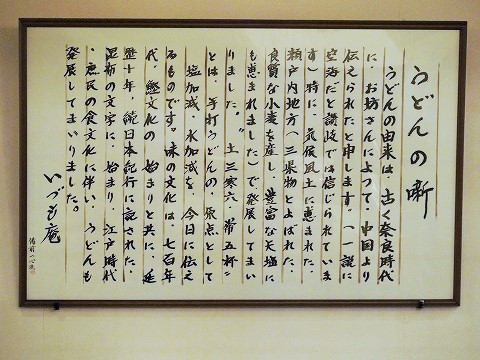 うどんの噺
うどんの由来は、古く奈良時代
に、お坊さんによって、中国より
伝えられたと申します。（一説に
空海だと讃岐では信じられていま
す）特に、気候風土に恵まれた、
瀬戸内地方（三県物とよばれた、
良質な小麦を産し、豊富な天塩に
も恵まれました）で発展してまい
りました。〝土三寒六、常五杯〟
とは、手打うどんの、原点として
塩加減、水加減を、今日に伝え
るものです。味の文化は、七百年
代、麺文化の始まりと共に、延
暦十年、続日本紀行に記された、
昆布の文字に、始まり、江戸時代
、庶民の食文化に伴い、うどんも
発展してまいりました。
いづも庵